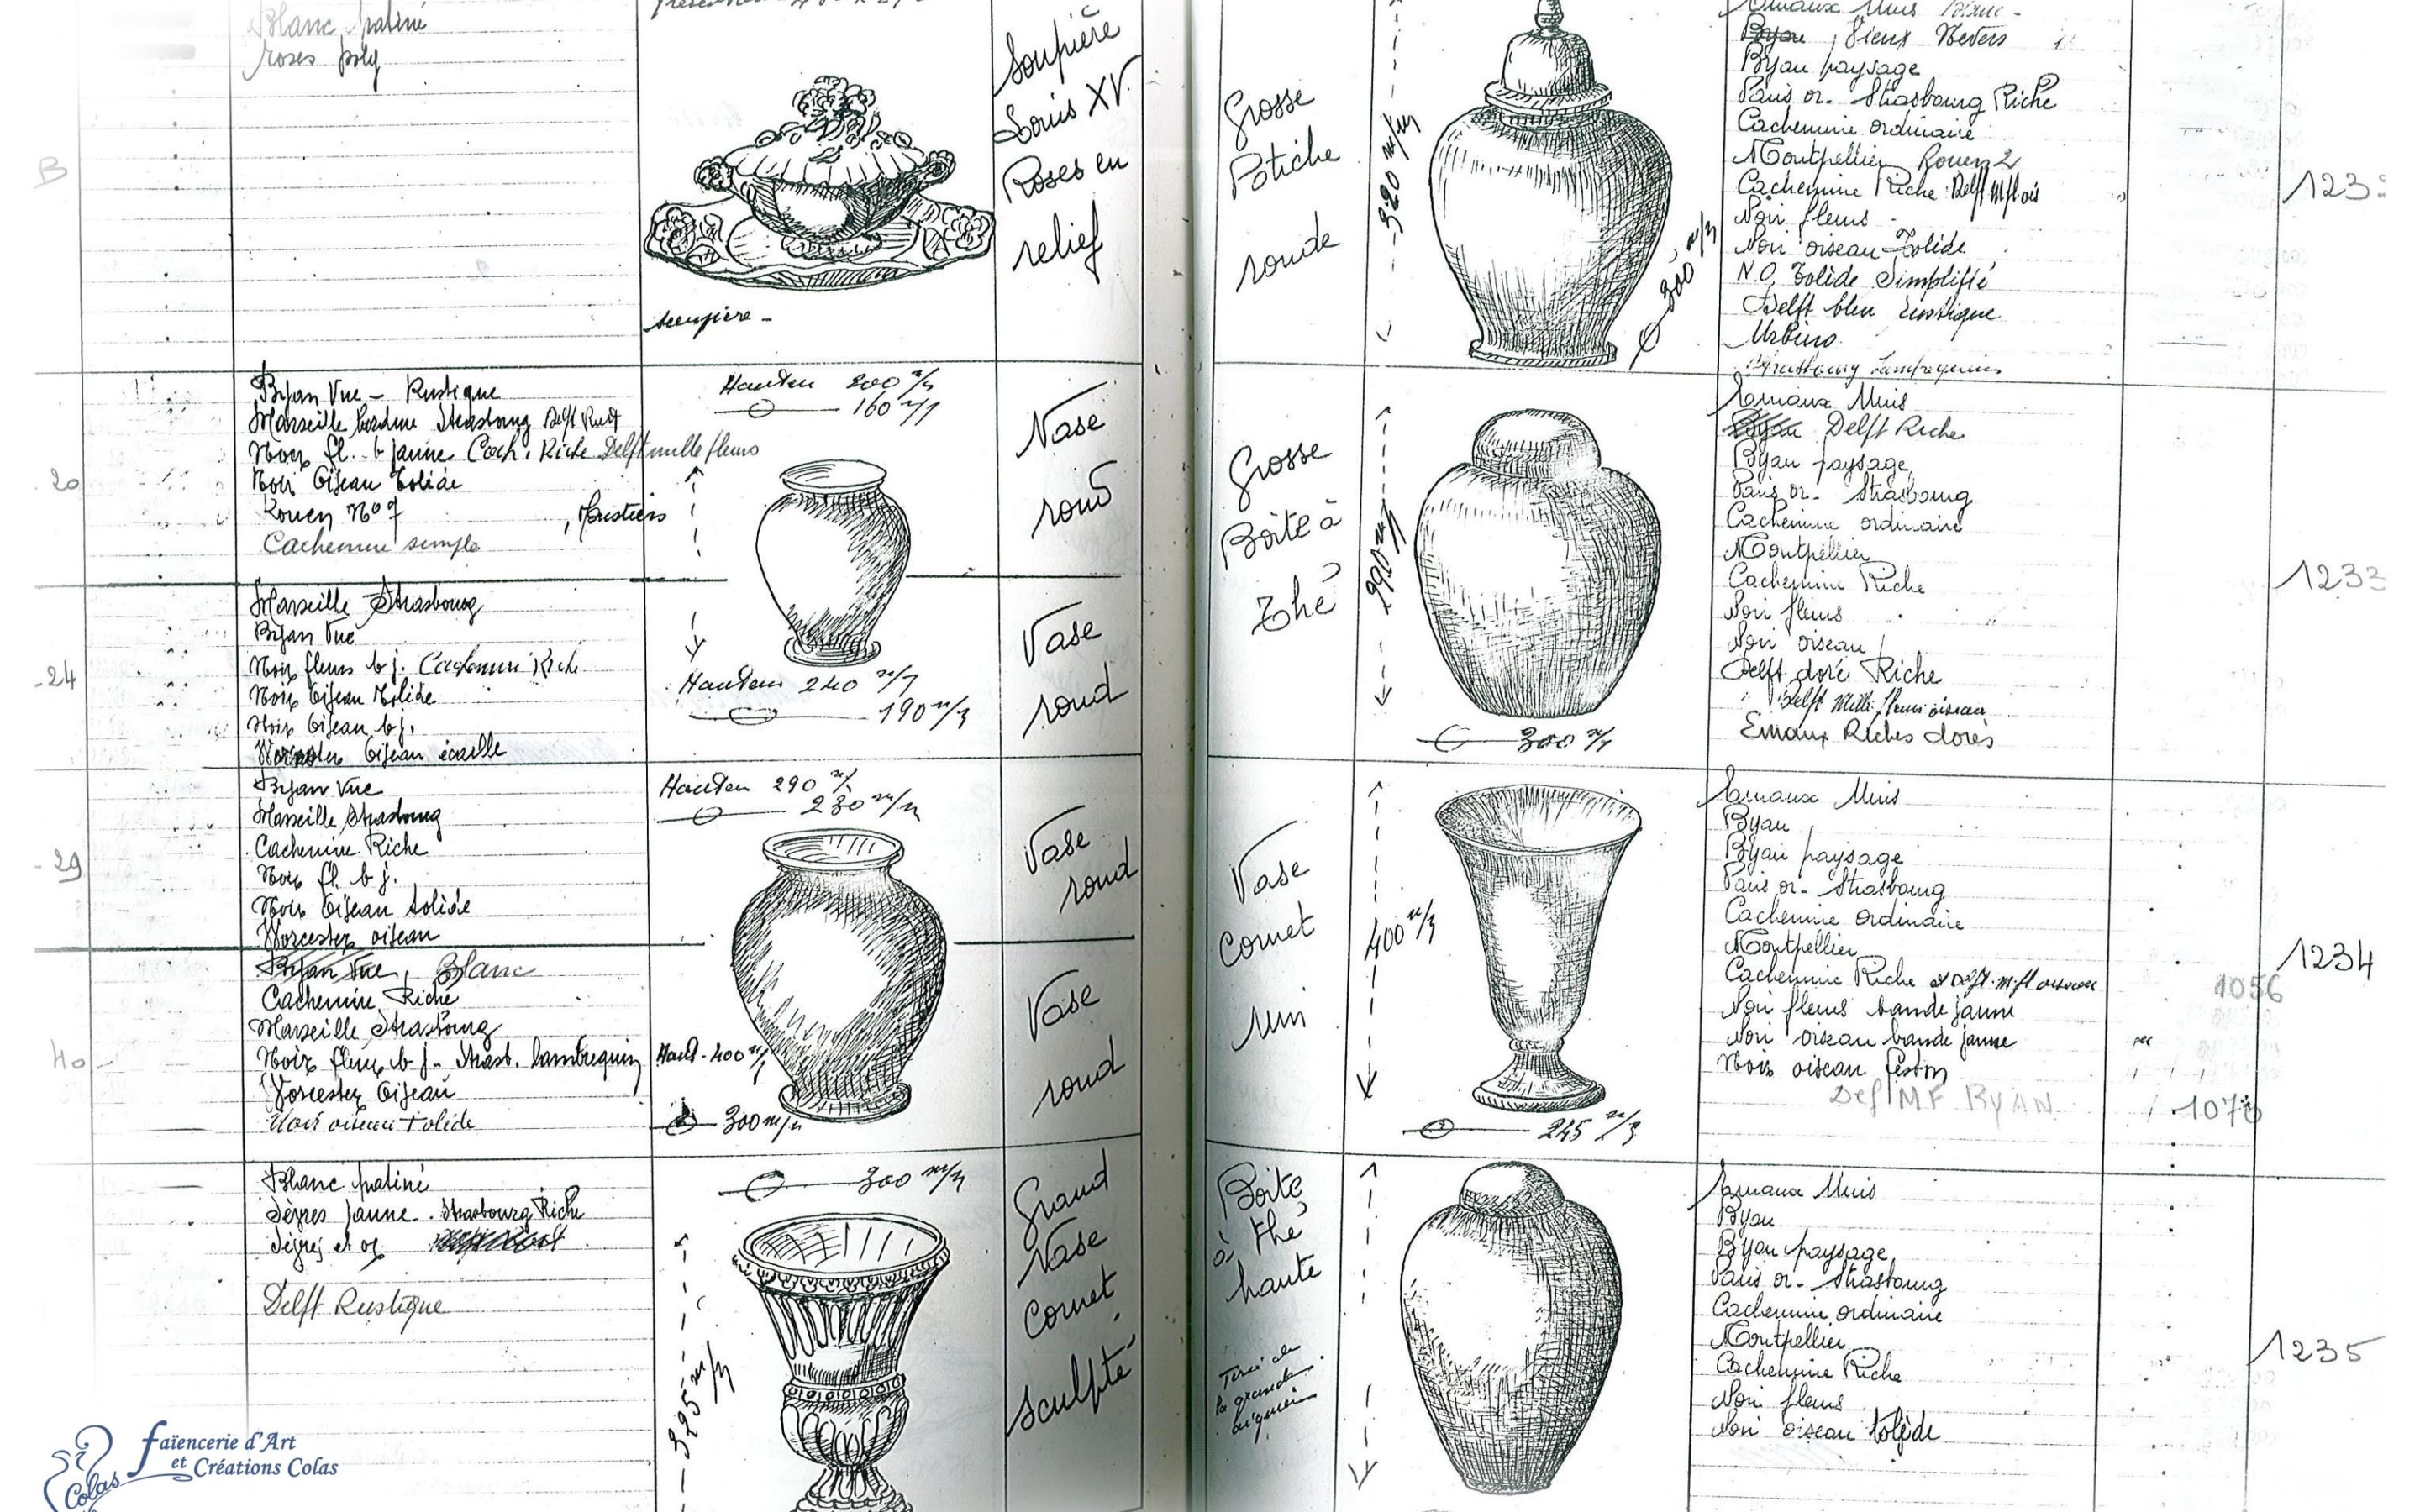 Blanc patiné
roses poly
soupière -
Soupière
Louis XV
Roses en
relief
B
Byan Vue - Rustique
Marseille bordure Strasbourg Delft Rust
Noir fl. b jaune Cach. Riche Delft mille fleurs
Noir Oiseau Tolède
Rouen No 7 , Moustiers
Cachemire simple
20
Hauteur 200 m/m
160 m/m
Vase
rond
Marseille Strasbourg
Byan Vue
Noir fleurs b j. Cachemire Riche
Noir Oiseau Tolède
Noir Oiseau b j.
Worcester Oiseau écaille
24
Hauteur 240 m/m
190 m/m
Vase
rond
Byan Vue
Marseille Strasbourg
Cachemire Riche
Noir fl. b j.
Noir Oiseau tolède
Worcester oiseau
29
Hauteur 290 m/m
230 m/m
Vase
rond
Byan Vue, Blanc
Cachemire Riche
Marseille Strasbourg
Noir fleurs b j - Strasb. lambrequin
Worcester Oiseau
Noir oiseau Tolède
40
Haut - 400 m/m
300 m/m
Vase
rond
Blanc patiné
Sèvres jaune - Strasbourg Riche
Sèvres et or
Delft Rustique
300 m/m
325 m/m
Grand
Vase
Cornet
sculpté
Faïencerie d'Art
et Créations Colas
Colas
Grosse
Potiche
ronde
320 m/m
300 m/m
Emaux Unis Blanc -
Byan , Vieux Nevers
Byan paysage
Paris or - Strasbourg Riche
Cachemire ordinaire
Montpellier Rouen 2
Cachemire Riche Delft M fl ois
Noir fleurs
Noir oiseau Tolède
N.O. Tolède Simplifié
Delft bleu rustique
Urbino
Strasbourg Lambrequins
123
Grosse
Boîte à
Thé
290 m/m
300 m/m
Emaux Unis
Byan Delft Riche
Byan paysage
Paris or - Strasbourg
Cachemire ordinaire
Montpellier
Cachemire Riche
Noir fleurs
Noir oiseau
Delft doré Riche
Delft Mille fleurs oiseau
Emaux Riches dorés
1233
Vase
Cornet
Uni
400 m/m
245 m/m
Emaux Unis
Byan
Byan paysage
Paris or - Strasbourg
Cachemire ordinaire
Montpellier
Cachemire Riche et Delft m. fl oiseau
Noir fleurs bande jaune
Noir oiseau bande jaune
Noir oiseau feston
Delf MF BYAN
1234
1056
1070
Boîte
à thé
haute
Tirée de
la grande
aiguière
Emaux Unis
Byan
Byan paysage
Paris or - Strasbourg
Cachemire ordinaire
Montpellier
Cachemire Riche
Noir fleurs
Noir oiseau tolède
1235